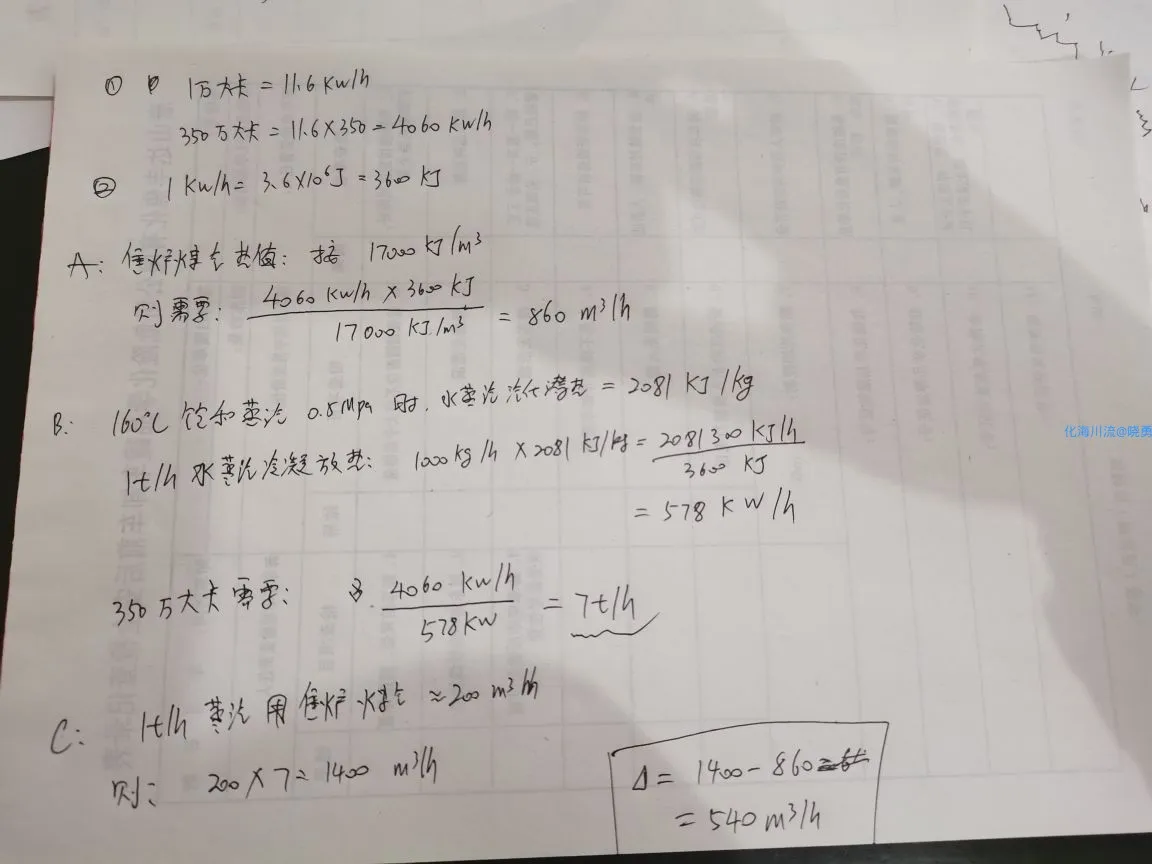 ① 1万大卡 = 11.6 Kw/h
350万大卡 = 11.6×350 = 4060 Kw/h
② 1 Kw/h = 3.6×10⁶J = 3600 KJ
A: 焦炉煤气热值: 按 17000 KJ/m³
则需要: 4060 Kw/h × 3600 KJ / 17000 KJ/m³ = 860 m³/h
B: 160℃ 饱和蒸汽 0.5Mpa 时, 水蒸汽汽化潜热 = 2081 KJ/kg
1t/h 水蒸汽冷凝放热: 1000kg/h × 2081 KJ/kg = 2081300 KJ/h / 3600 KJ
= 578 KW/h
350万大卡需要: 4060 Kw/h / 578KW = 7t/h
C: 1t/h 蒸汽用焦炉煤气 ≈ 200 m³/h
则: 200×7 = 1400 m³/h
Δ = 1400 - 860
= 540 m³/h
化海川流@晓勇